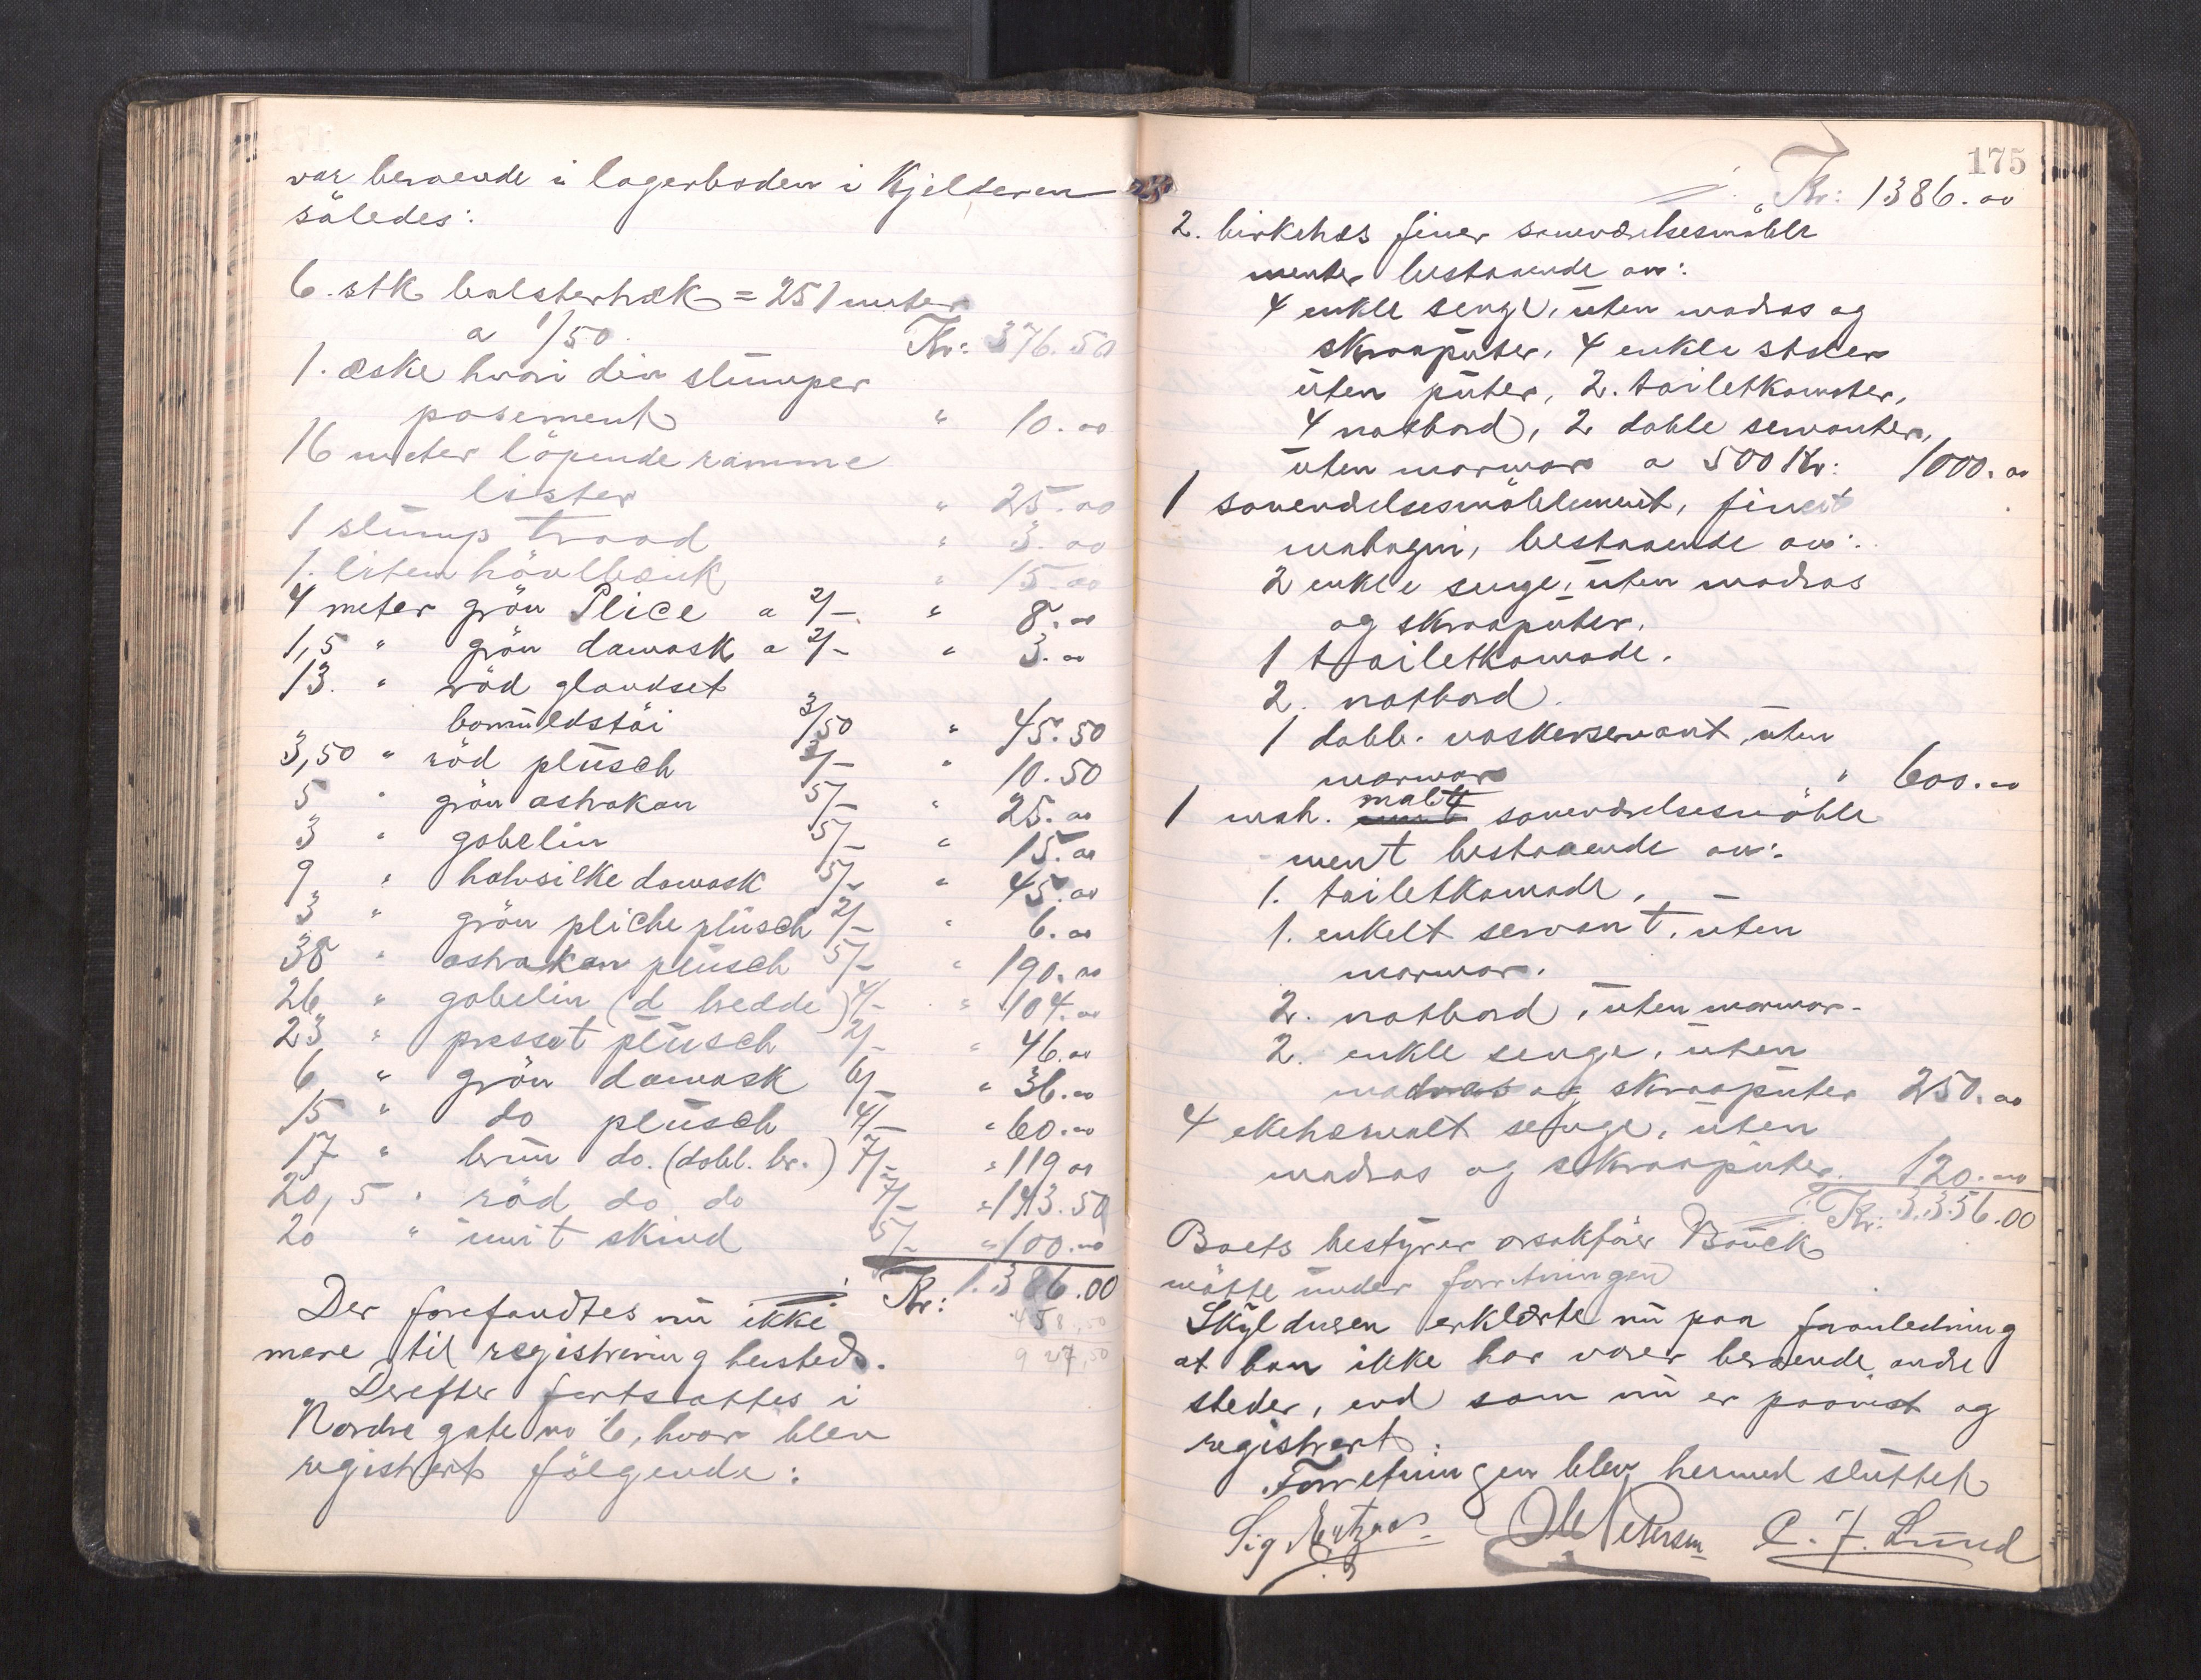 var beroende i lagerboden i Kjelderen
således:
6. stk bolstertræk = 251 meter
a 1/50. Kr: 376.50
1. æske hvori div stumper
posement " 10.00
16 meter löpende ramme
lister " 25.00
1 stump traad " 3.00
1. liten hövlbænk " 15.00
4 meter grön Plice a 2/- " 8.00
1,5 " grön damask a 2/- " 3.00
13. " röd glandset
bomuldstöi 3/50 " 45.50
3,50 " röd plusch 3/- " 10.50
5 " grön astrakan 5/- " 25.00
3 " gobelin 5/- " 15.00
9 " halvsilke damask 5/- " 45.00
3 " grön pliche plusch 2/- " 6.00
38 " astrakan plusch 5/- " 190.00
26 " gobelin (d bredde) 4/- " 104.00
23 " presset plusch 2/- " 46.00
6 " grön damask 6/- " 36.00
15 " do plusch 4/- " 60.00
17 " brun do. (dobl. br.) 7/- " 119 00
20,5 " röd do do 7/- " 143.50
20 " imit skind 5/- " 100.00
Kr: 1.386.00
458,50
927,50
Der forefandtes nu ikke
mere til registrering hersteds.
Derefter fortsattes i
Nordre gate no 6, hvor blev
registrert fölgende:
175
Kr: 1386.00
2. birkehos finer soveværelsesmöble
menter bestaaende av:
4 enkle senge, uten madras og
skraaputer, 4 enkle stoler
uten puter, 2. toiletkomoter,
4 natbord, 2 doble servanter,
uten marmor a 500 Kr: 1000.00
1 soveværelsesmöblement, finert
mahogni, bestaaende av:
2 enkle senge, uten madras
og skraaputer.
1 toiletkomode.
2. natbord.
1 dobb. vaskerservant uten
marmor " 600.00
1 mah. malt soveværelsesmöble
ment bestaaende av:
1. toiletkomode,
1. enkelt servant, uten
marmor.
2. natbord, uten marmor.
2. enkle senge, uten
madras og skraaputer 250.00
4 ekehosmalt senge, uten
madras og skraaputer. 120.00
Kr: 3.356.00
Boets bestyrer orsakförer Bauck
mötte under forretningen
Skyldneren erklærte nu paa foranledning
at han ikke har varer beroende andre
steder, end som nu er paavist og
registrert.
Forretningen blev hermed sluttet
Sig Ole Petersen C. F. Lund